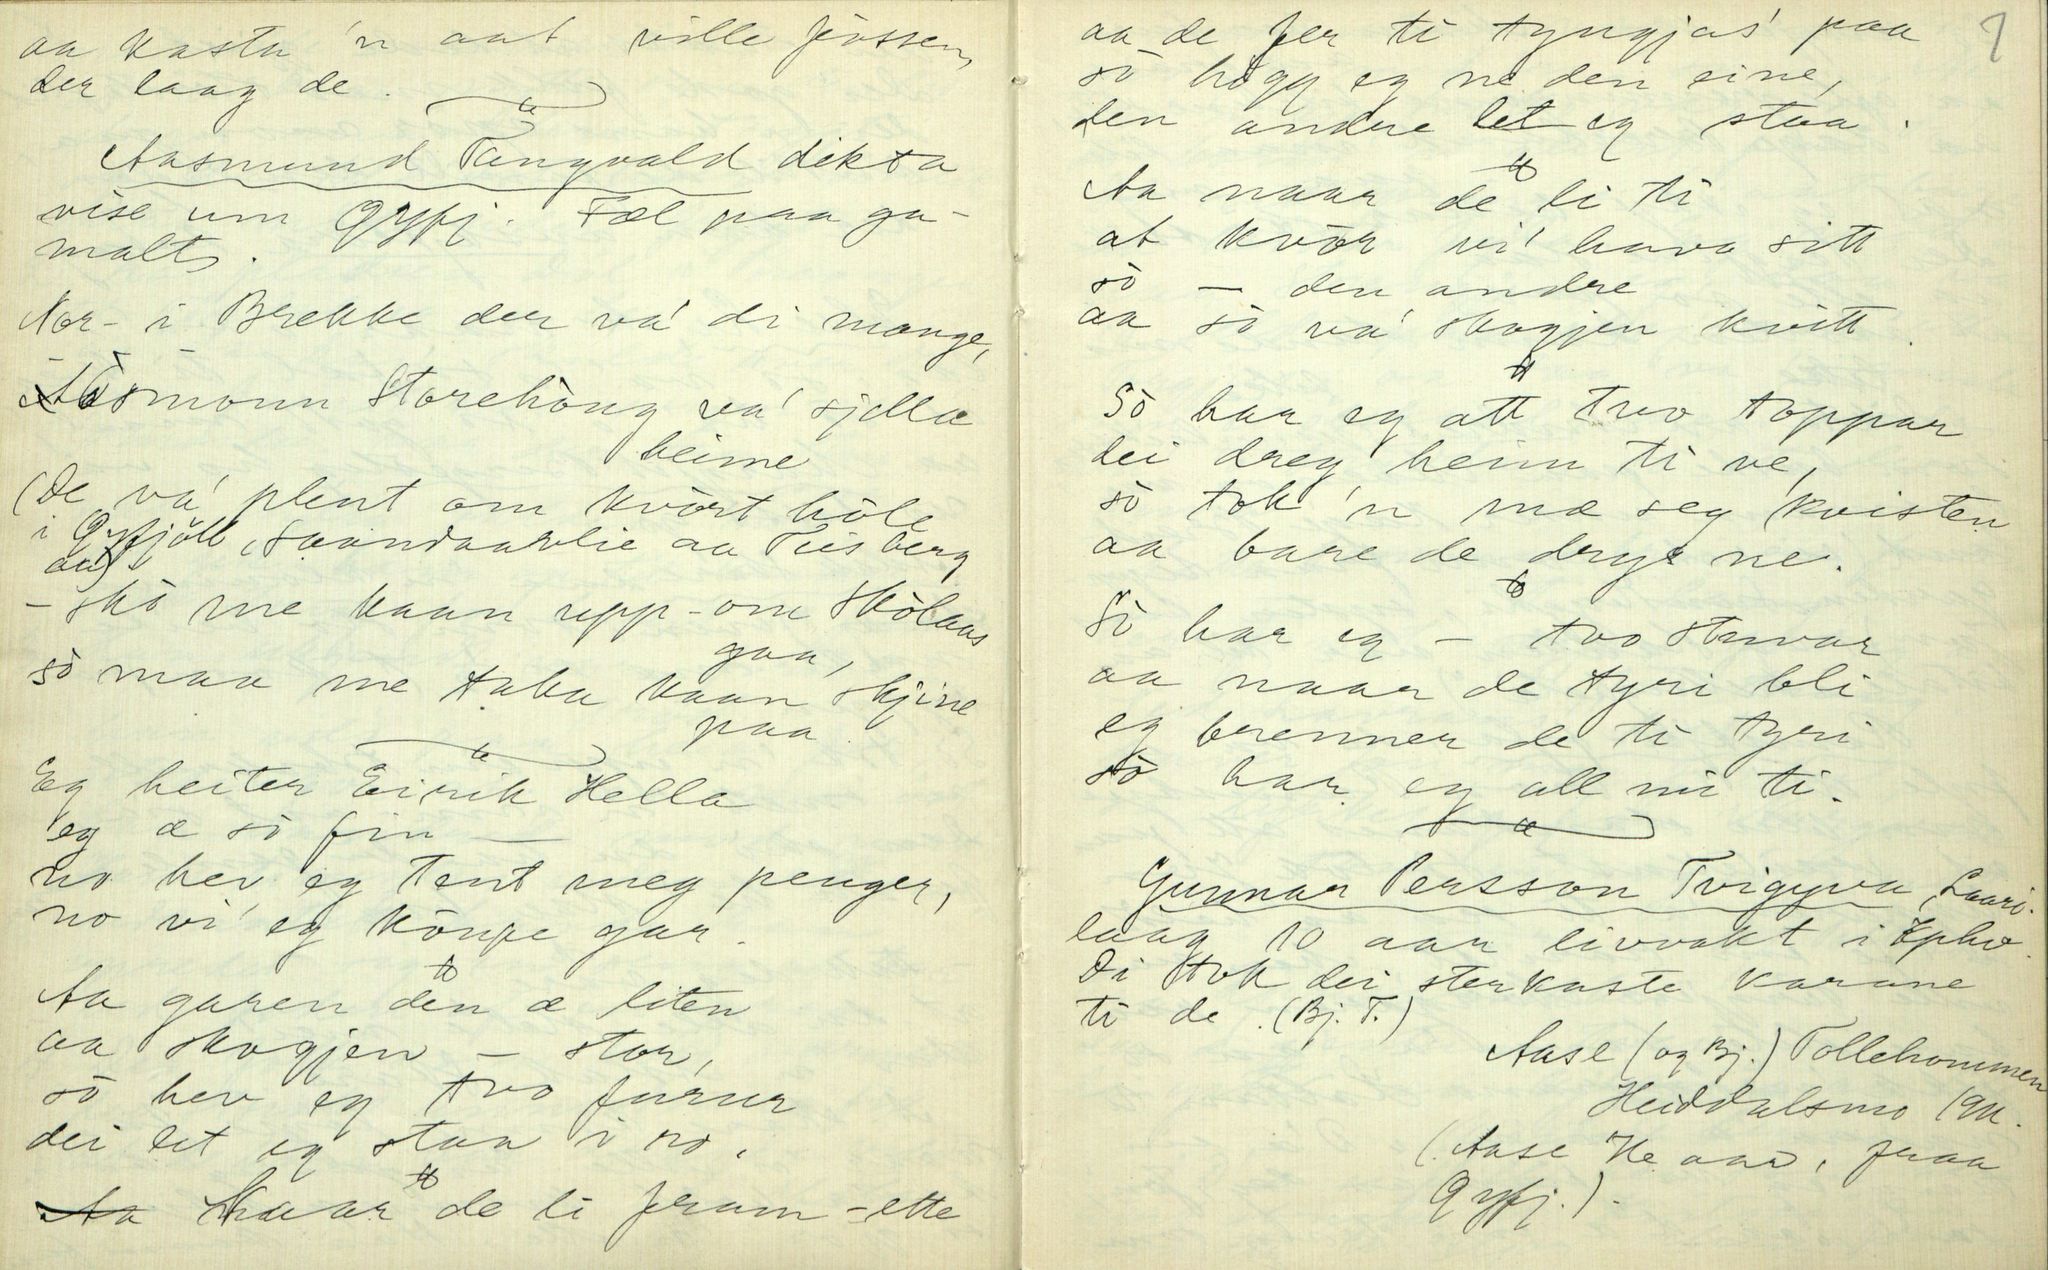 aa kasta 'n aat ville fossen,
der laag de.
Aasmund Tangvald dikta
vise um Gryfj. Fæl paa ga-
malt.
Nor- i Brekke der va' di mange,
Åsmonn Storehòug va' sjella
heime
(De va' plent om kvòrt hòle
i Gryfjöll, Saandaarlie aa Tiisberg
au)
- skò me kaan upp-om Skòlaas
gaa,
sò maa me taka kaan skjine
paa
Eg heiter Eirik Hella
eg æ sò fin —
no hev eg tent meg penger,
no vi' eg kòupe gar.
Aa garen den æ liten
aa skogjen — stor,
sò hev eg tvo furur
dei let eg staa i ro.
Naar de li fram-ette
7
aa de fer ti tyngjas' paa
sò hògg eg ne den eine,
den andre let eg staa.
Aa naar de li ti
at kvòr vi' hava sitt
sò — den andre
aa sò va' skogjen kvitt.
Sò har eg att tvo toppar
dei dreg heim ti ve,
sò tok 'n mæ seg kvisten
aa bare de dryge ne.
Sò har eg — tvo stuvar
aa naar de tyri bli
eg brenner de ti tyri
sò har eg all mi ti.
Gunnar Persson Tvigyva, Laari.
laag 10 aar livvakt i Kphv.
Di tok dei sterkaste karane
ti de. (Bj. T.)
Aase (og Bj.) Tollehommen
Heiddalsmo 1911.
(Aase He aar, fraa
Gryfj.).